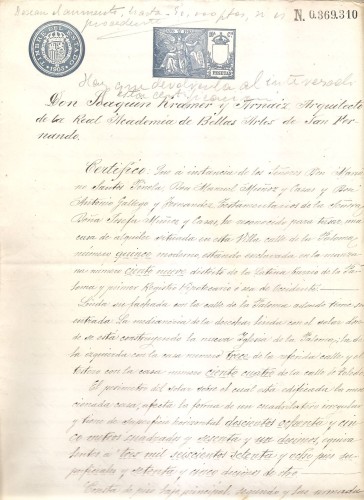 N. 0.369.310
TIMBRE DEL ESTADO
1905
PESETA
Hay que devolverla al interesado
Don Joaquín Kramer y Arnaiz Arquitecto
de la Real Academia de Bellas Artes de San Fer-
nando.
Certifico: Que á instancia de los Señores Don Maria-
no Santos Pinela, Don Manuel Muñoz y Casas y Don
Antonio Gallego y Fernandez, Testamentarios de la Señora
Doña Josefa Muñoz y Casas, he reconocido para tasar, una
casa de alquiler situada en esta Villa calle de la Paloma,
número quince moderno estando enclavada en la manza-
na número ciento nueve distrito de la Latina barrio de la Pa-
loma y primer Registro Hipotecario ó sea de Occidente.
Linda su fachada con la calle de la Paloma adonde tiene su
entrada: La medianeria de la derecha linda con el solar don-
de se está construyendo la nueva Iglesia de la Paloma; la de
la izquierda con la casa número trece de la referida calle y el
testero con la casa número ciento cuatro de la calle de Toledo.
El perimetro del solar sobre el cual esta edificada la men-
cionada casa, afecta la forma de un cuadrilatero irregular
y tiene de superficie horizontal doscientos ochenta y cin-
co metros cuadrados y sesenta y un decimos, equiva-
lentes á tres mil seiscientos setenta y ocho pies su-
perficiales y setenta y cinco decimos de otro.
Consta de piso bajo, principal, segundo y las armadu-